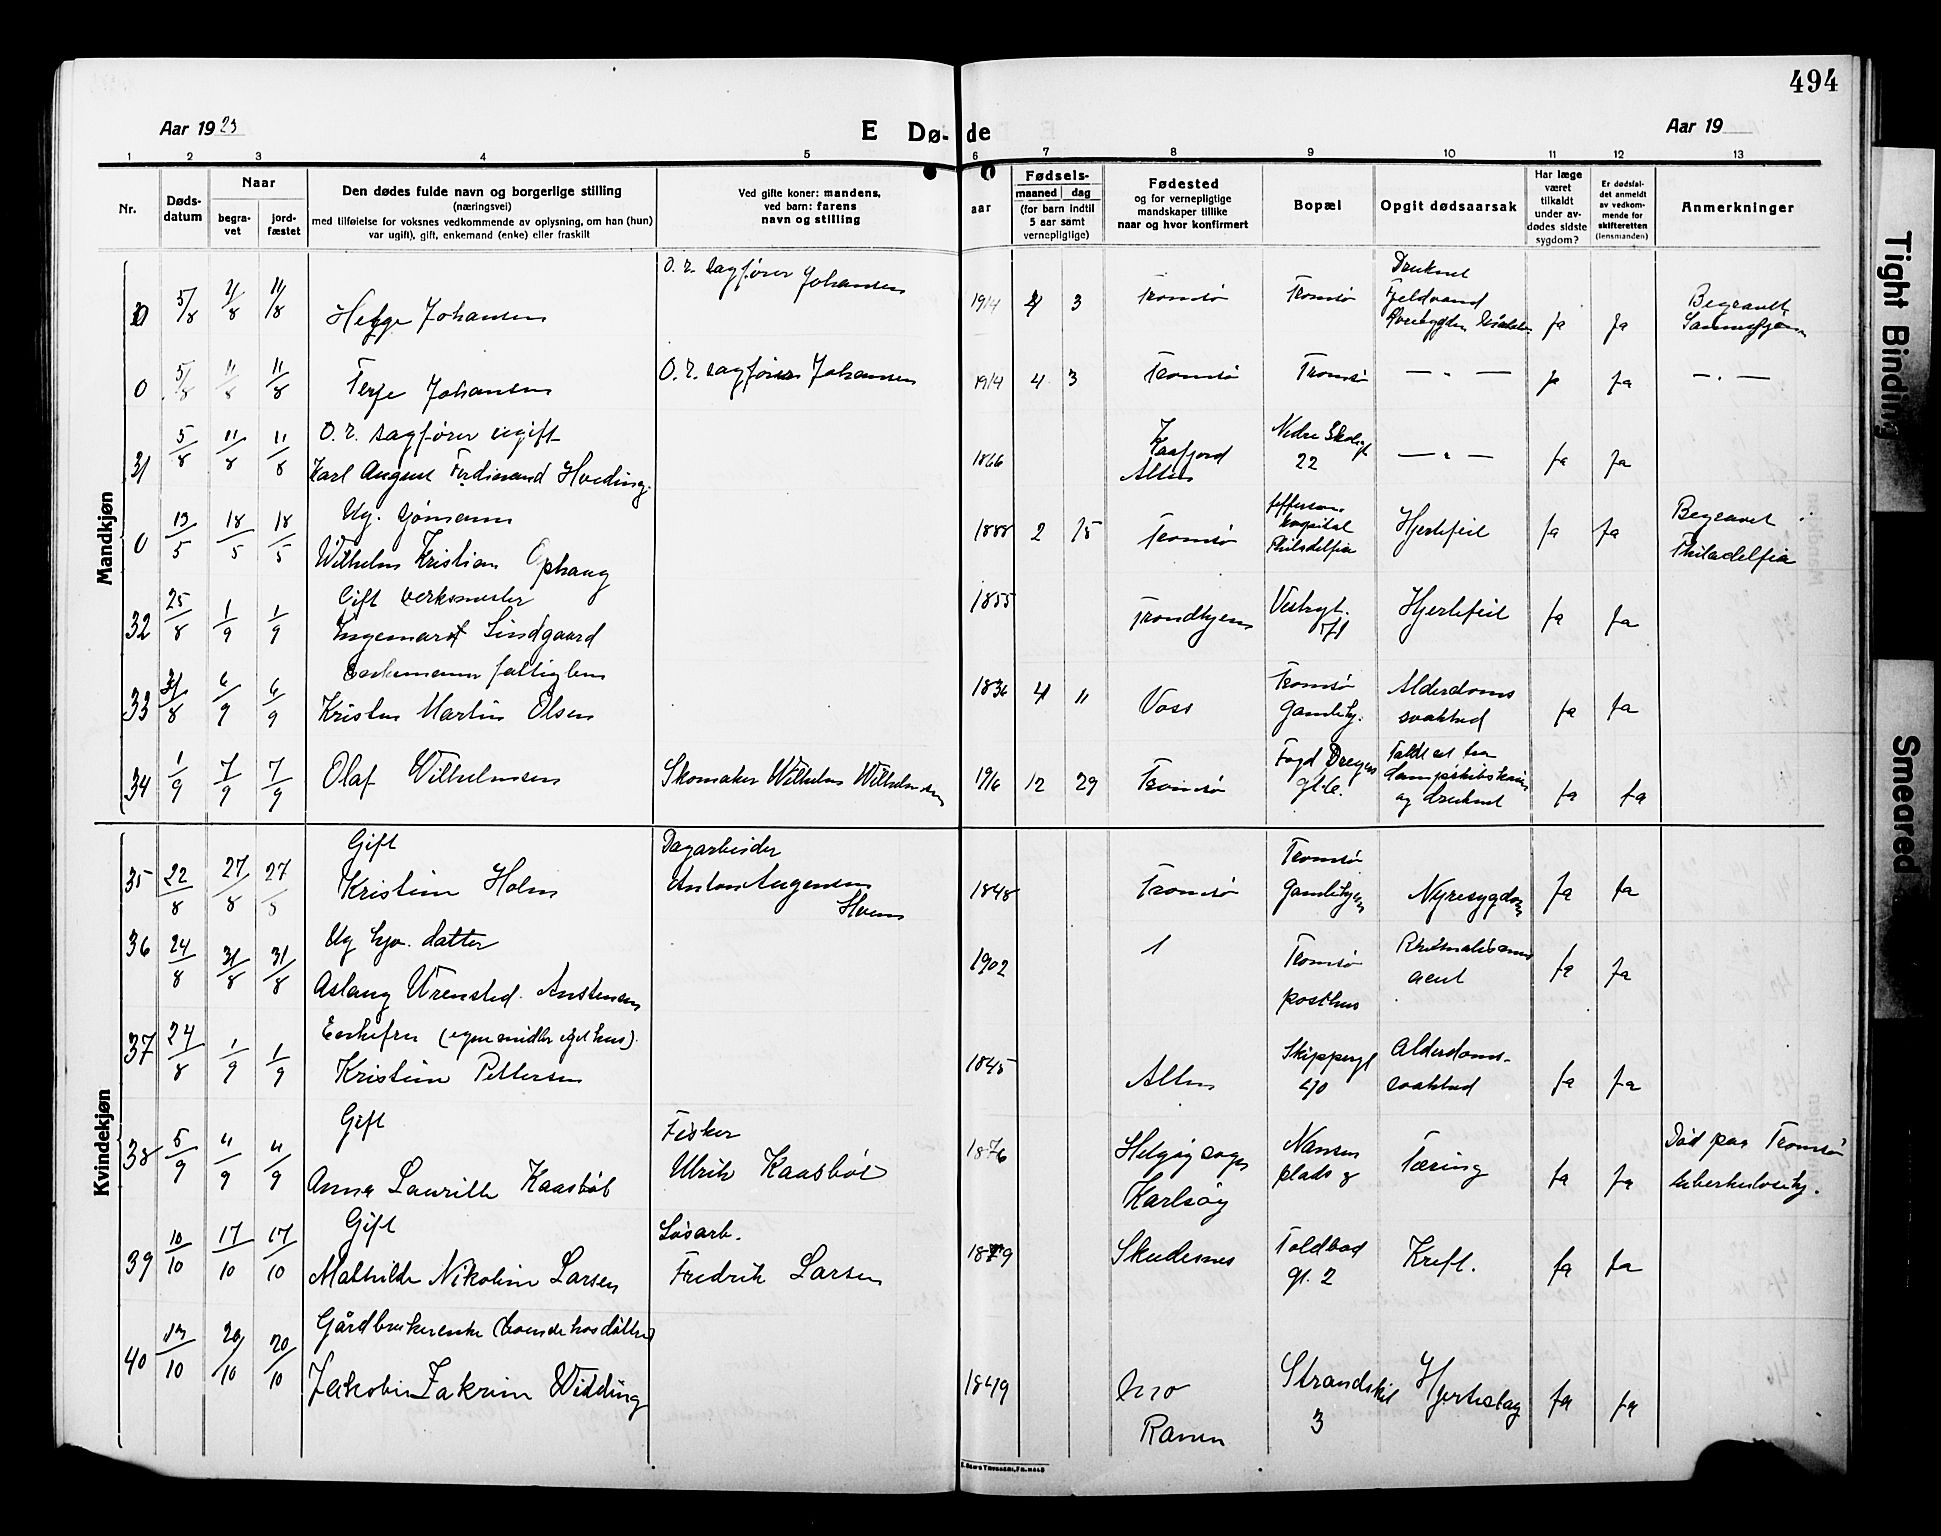 494
Aar 1923
E Dø-de
Aar 19
1 2 3 4 5 6 7 8 9 10 11 12 13
Nr.
Døds-
datum
Naar
begra-
vet
jord-
fæstet
Den dødes fulde navn og borgerlige stilling
(næringsvei)
med tilføielse for voksnes vedkommende av oplysning, om han (hun)
var ugift), gift, enkemand (enke) eller fraskilt
Ved gifte koner: mandens,
ved barn: farens
navn og stilling
Fødsels-
aar
maaned dag
(for barn indtil
5 aar samt
vernepligtige)
Fødested
og for vernepligtige
mandskaper tillike
naar og hvor konfirmert
Bopæl
Opgit dødsaarsak
Har læge
været
tilkaldt
under av-
dødes sidste
sygdom?
Er dødsfal-
det anmeldt
av vedkom-
mende for
skifteretten
(lensmanden)
Anmerkninger
Mandkjøn
0 5/8 11/8 11/8 Helge Johansen
O. r. sagfører Johansen
1914 4 3 Tromsø Tromsø
Druknet
Fjeldvand
ja ja
Begravet
0 5/8 11/8 11/8 Terje Johansen
O. r. sagfører Johansen
1914 4 3 Tromsø Tromsø — " — ja ja — " —
31 5/8 11/8 11/8 O. r. sagfører ugift
Karl August Ferdinand Hveding
1866 Kaafjord
Alten
Nedre Skolegt
22
— " — ja ja
0 13/5 18/5 18/5 Ug. sjømann
Wilhelm Kristian Ophaug
1888 2 15 Tromsø
Jefferson
hospital
Philadelfia
Hjertefeil ja ja
Begravet i
Philadelfia
32 25/8 1/9 1/9 Gift verksmester
Ingemard Lindgaard
1855 Trondhjem
Vestregt.
71
Hjertefeil ja ja
33 31/8 6/9 6/9 Enkemann fattiglem
Kristen Martin Olsen
1836 4 11 Voss
Tromsø
gamlehj.
Alderdoms
svakhed
ja ja
34 1/9 7/9 7/9 Olaf Wilhelmsen
Skomaker Wilhelm Wilhelmsen
1916 12 29 Tromsø
Fogd Dreyers
gt. 6.
Faldt ut fra
dampskibskaien
og druknet
ja ja
Kvindekjøn
35 22/8 27/8 27/8 Gift
Kristine Holm
Dagarbeider
Anton Augensen
Holm
1848 Tromsø
Tromsø
Gamlehjem
Nyresygdom ja ja
36 24/8 31/8 31/8 Ug hjv. datter
Aslaug Urensted Anstensen
1902
Tromsø
posthus
Rheumatisme
acut
ja ja
37 24/8 1/9 1/9 Enkefru (egne midler eget hus).
Kristine Pettersen
1845 Alten
Skippergt
40
Alderdoms-
svakhed
ja ja
38 5/9 11/9 11/9 Gift
Anna Laurille Kaasbøl
Fisker
Ulrik Kaasbøl
1876 Helgøy sogn
Karlsøy
Nansens
plads 9
Tæring ja ja
Død paa Tromsø
tuberkulosehj.
39 10/10 17/10 17/10 Gift
Mathilde Nikoline Larsen
Løsarb.
Fredrik Larsen
1879 Skudesnes
Toldbod
gt. 2
Kreft. ja ja
40 13/10 20/10 20/10 Gårdbrukerenke (boende hos datter)
Jakobine Zakrine Widding
1849 Mo
Ranen
Strandskil
3
Hjerteslag ja ja
Tight Binding
Smeared